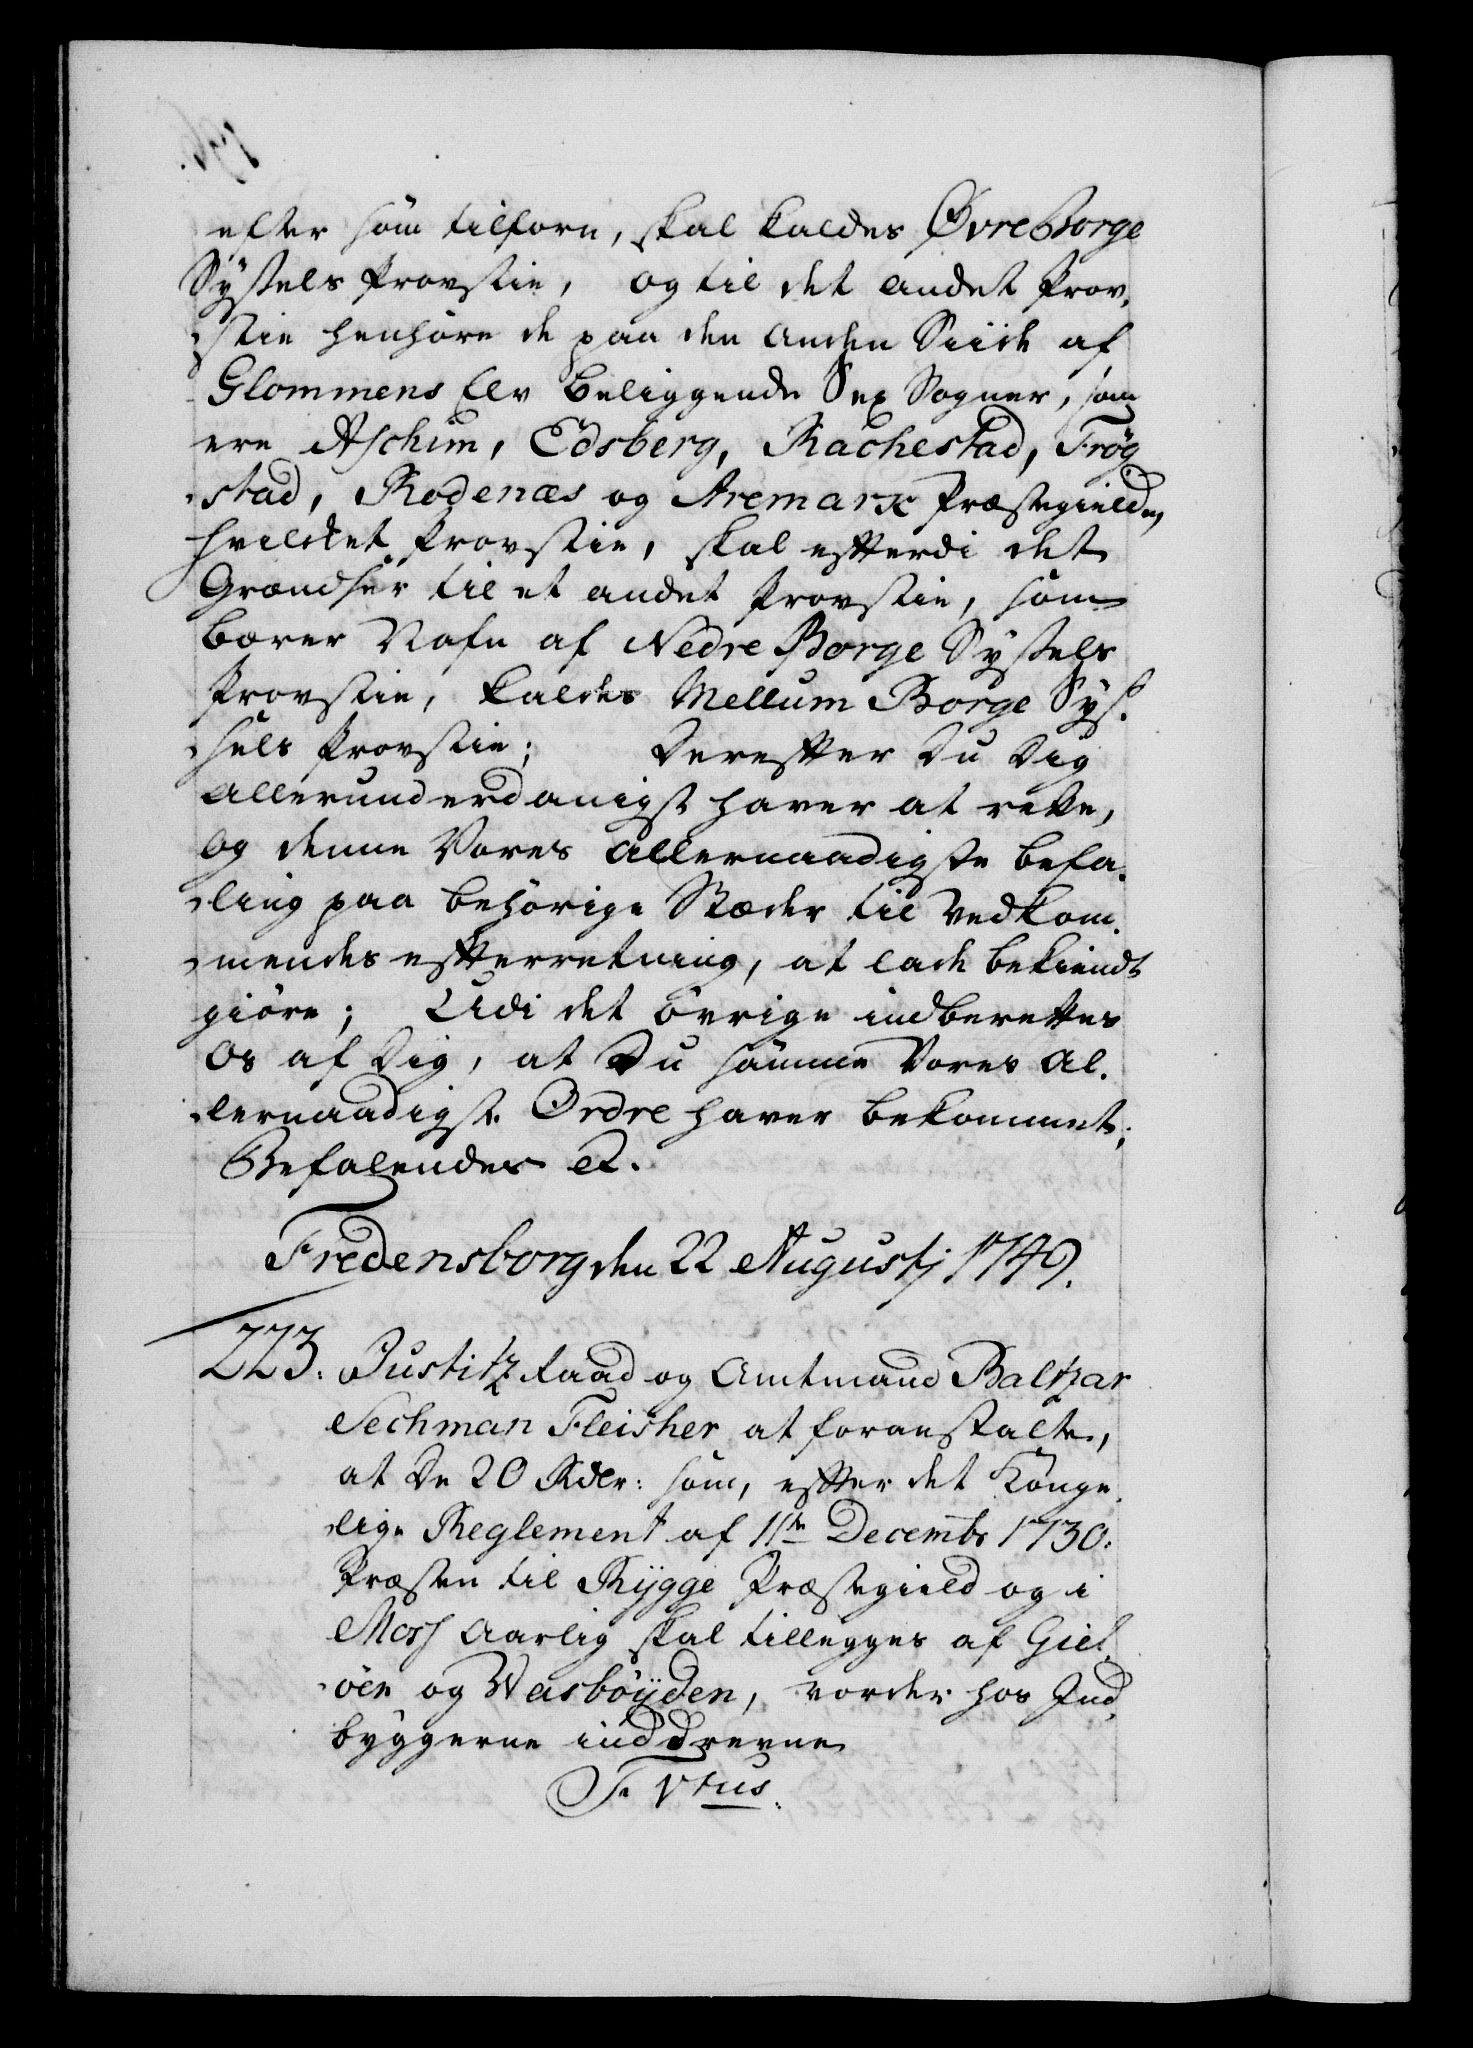 efter som tilforn, skal kaldes Øvre Borge
Sÿssels Provstie, og til det andet Prov,
,stie henhøre de paa den anden Siide af
Glommens Elv beliggende Sex Sogner, som
ere Aschim, Edsberg, Rachestad, Frøg
,stad, Rodenæs og Aremark Præstegielde,
hvilcket Provstie, skal efterdi det
Grændser til et andet Provstie, som
bærer Nafn af Nedre Borge Sÿssels
Provstie, kaldes Mellum Borge Sÿs,
,sels Provstie; Derefter Du Dig
allerunderdanigst haver at rette,
og denne Vores allernaadigste befa,
,ling paa behørige Stæder til Vedkom,
,mendes efterretning, at lade bekiendt
giøre; Udi det øvrige indberettes
Os af Dig, at Du samme Vores al,
,lernaadigste Ordre haver bekommet;
Befalendes etc.
Fredensborg den 22 Augustj 1749.
223. Justitz Raad og Amtmand Baltzar
Sechman Fleisher at foranstalte,
at De 20 Rdlr: som, efter det Konge,
,lige Reglement af 11te Decembr 1730.
Præsten til Rÿgge Præstegield og i
Moss aarlig skal tillegges af Giel,
,øen og Wasbøÿden, vorder hos Ind,
byggerne inddrevne
F Vtus.